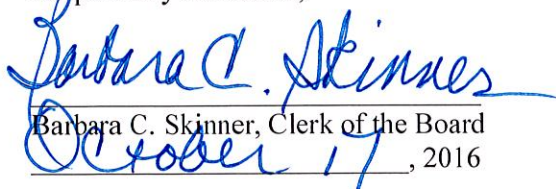 Barbara C. Skinner
Barbara C. Skinner, Clerk of the Board
October 17, 2016